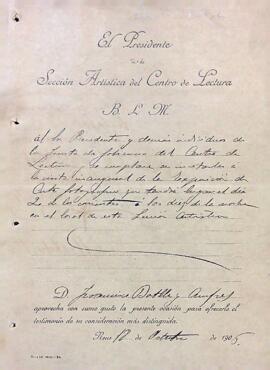 El Presidente
de la
Sección Artística del Centro de Lectura
B. L. M.
al Sr. Presidente y demás individuos de
la Junta de gobierno del Centro de
Lectura y se complace en invitarles a
la visita inaugural de la Exposición de
Arte fotográfico que tendrá lugar el día
2 de los corrientes á las diez de la noche
en el local de esta Sección
D. Francisco
aprovecha con sumo gusto la presente ocasión para ofrecerle el
testimonio de su consideración más distinguida.
Reus de Octubre de 1905